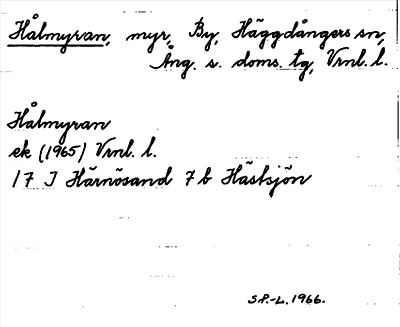 Hålmyran, myr, By, Häggdångers sn,
Ång. s. doms. tg, Vrnl. l.
Hålmyran
ek (1965) Vrnl. l.
17 I Härnösand 7 b Hästsjön
S.P.-L. 1966.